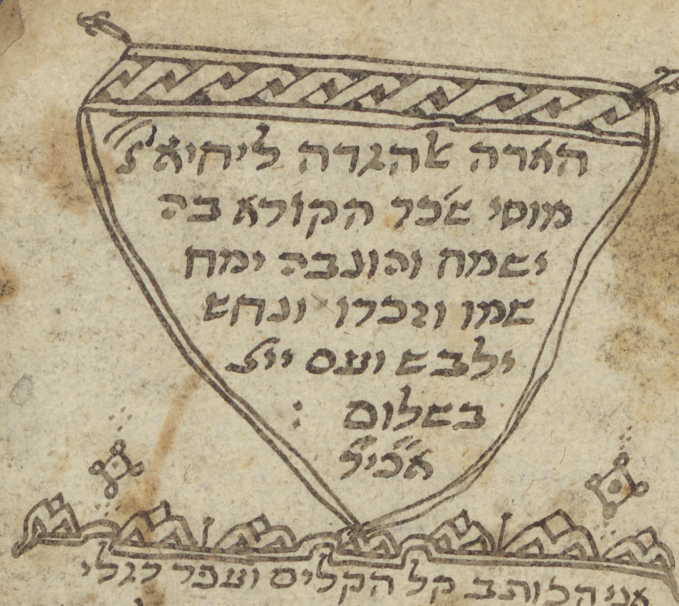 האדה אהגדה ליחיאל
מוסי שכר הקורא בה
ישמח והגונבה ימח
שמו וזכרו ונחש
ילבש ועם ייצ
בשלום :
אכי״ר
אני הכותב קל הקלים ועפר רגלי